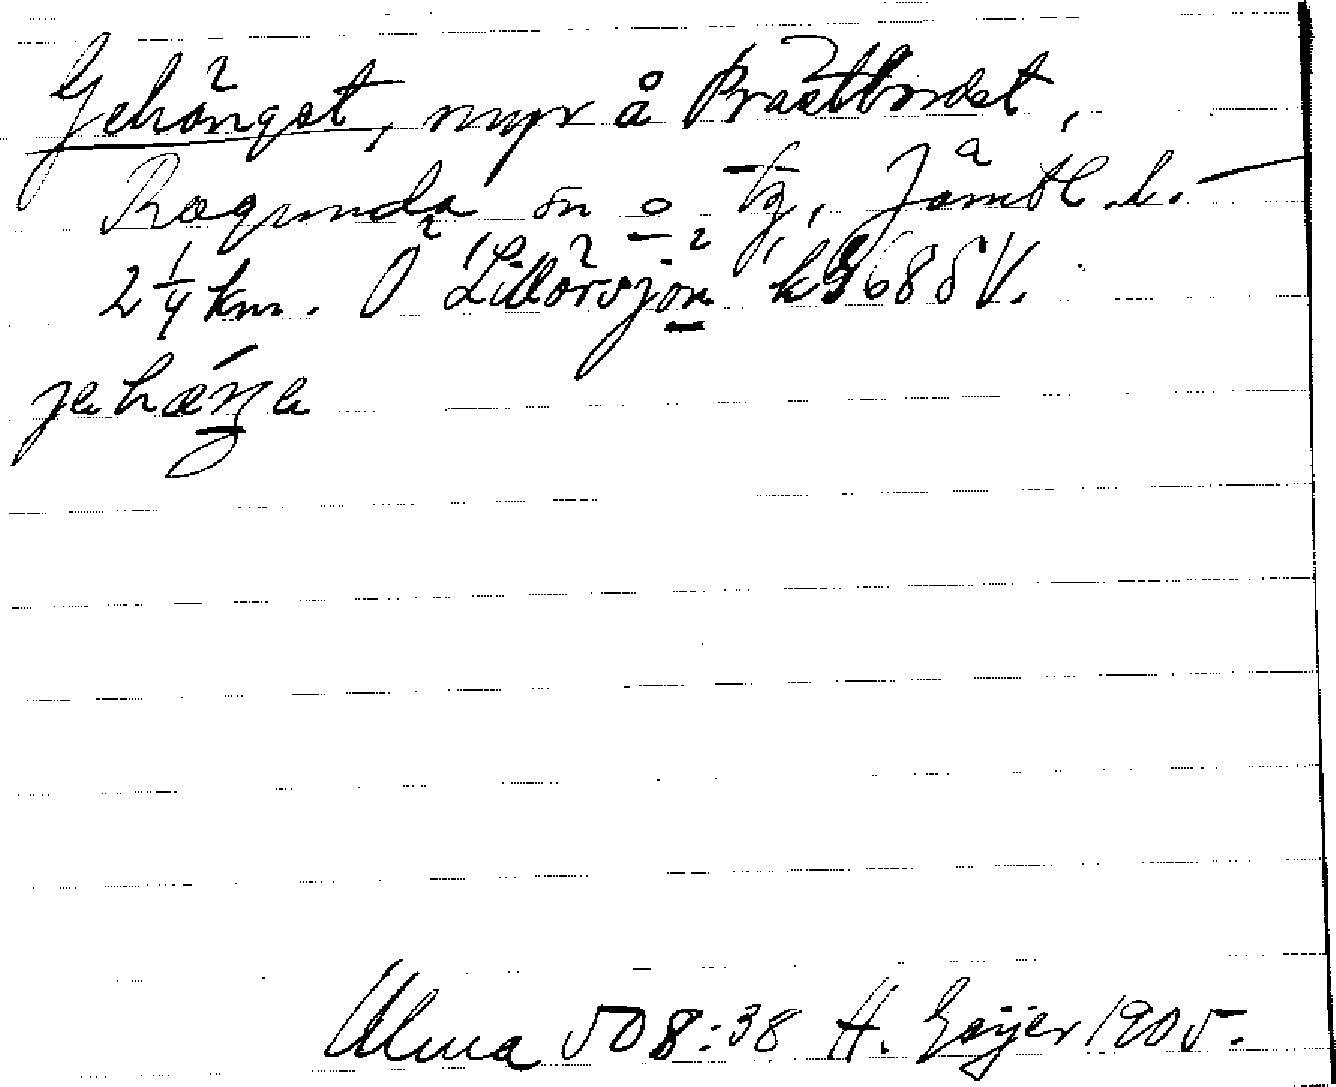 Gehänget, myr å Prästbordet,
Ragunda sn o. tg, Jämtl. l.
2 1/4 km. Ö Lillörsjön k968 SV.
jehäŋe
Ulma 508:38 H. Geijer 1905.